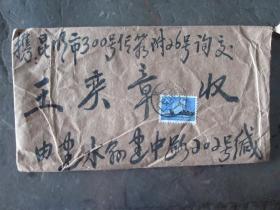 昆明市300号信箱附26号询交
王奕章收
由建水翁建中路302号缄